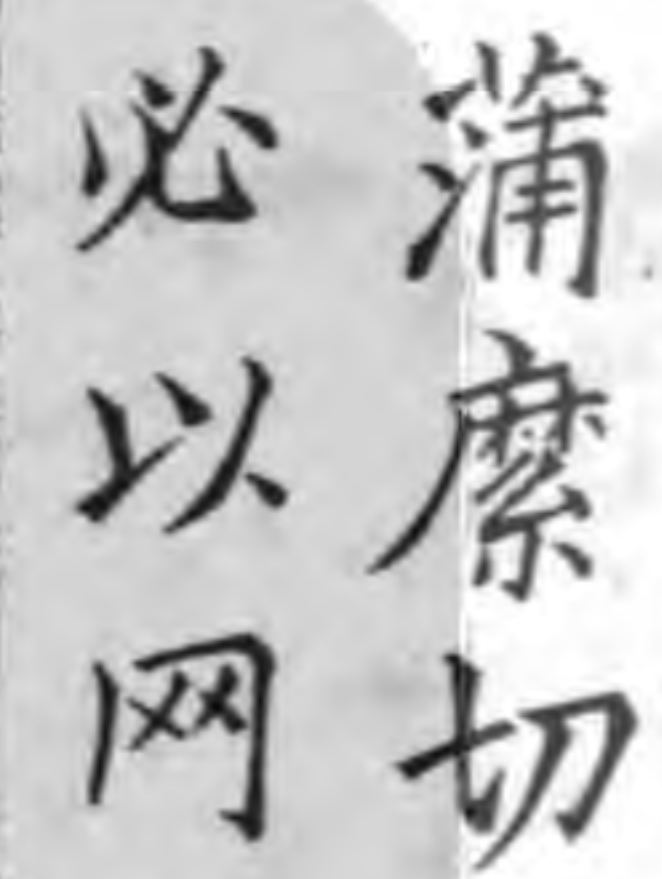 蒲縻切
必以网